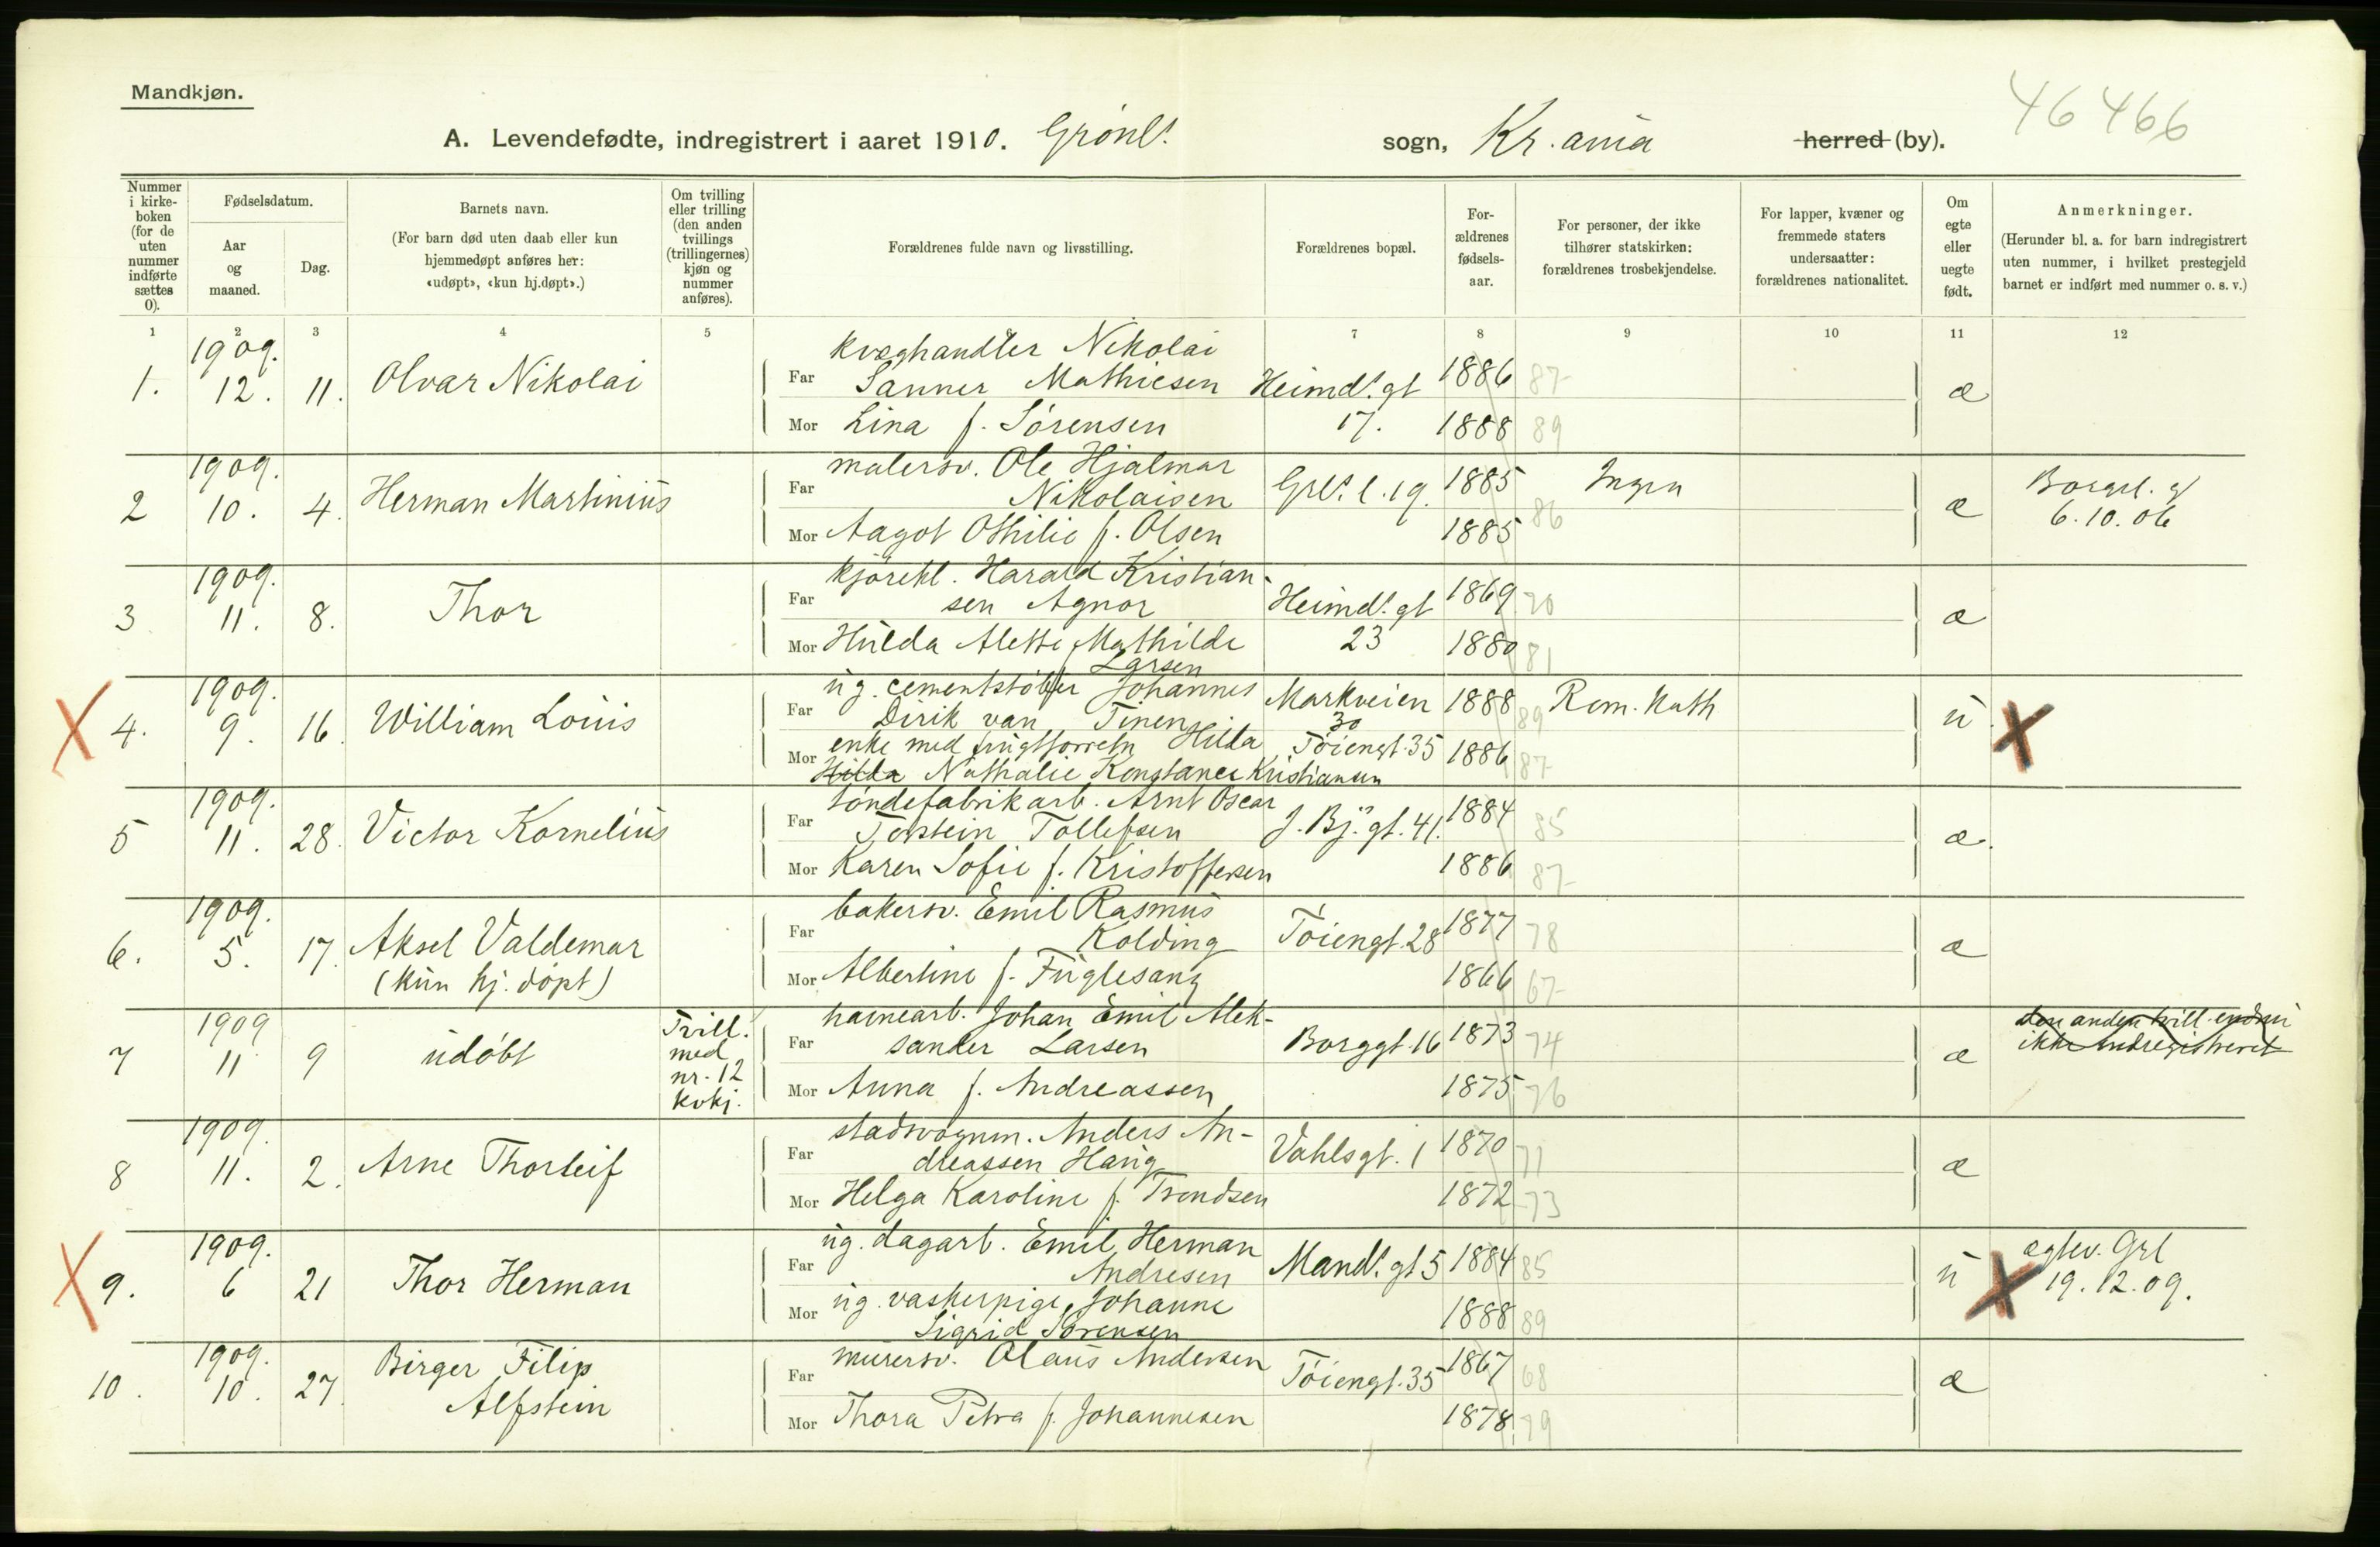 Mandkjøn.
46 466
A. Levendefødte, indregistrert i aaret 1910. Grønl. sogn, Kr.ania herred (by).
Nummer i kirke-boken (for de uten nummer indførte sættes 0).
Fødselsdatum.
Aar og maaned.
Dag.
Barnets navn.
(For barn død uten daab eller kun hjemmedøpt anføres her: «udøpt», «kun hj.døpt».)
Om tvilling eller trilling (den anden tvillings (trillingernes) kjøn og nummer anføres).
Forældrenes fulde navn og livsstilling.
Forældrenes bopæl.
For-ældrenes fødsels-aar.
For personer, der ikke tilhører statskirken: forældrenes trosbekjendelse.
For lapper, kvæner og fremmede staters undersaatter: forældrenes nationalitet.
Om egte eller uegte født.
Anmerkninger.
(Herunder bl. a. for barn indregistrert uten nummer, i hvilket prestegjeld barnet er indført med nummer o. s. v.)
1 2 3 4 5 6 7 8 9 10 11 12
1909.
1. 12. 11. Olvar Nikolai
Far kvæghandler Nikolai
Sanner Mathiesen Heimd. gt 1886 87 æ
Mor Lina f. Sørensen 17. 1888 89
1909.
2 10. 4. Herman Martinius
Far malersv. Ole Hjalmar
Nikolaisen Grl. l. 19. 1885 Ingen æ Borgerl. g
6.10.06
Mor Aagot Othilie f. Olsen 1885 86
1909.
3 11. 8. Thor
Far kjørekl. Harald Kristian-
sen Agnor Heimd. gt 1869 70 æ
Mor Hulda Alette Mathilde 23 1880 81
Larsen
1909.
4. 9. 16 William Louis
Far ug. cementstøber Johannes Markveien 1888 89 Rom. Kath u
Dirik van Tinen 30
Mor enke med frugtforretn Hilda Tøiengt. 35 1886 87
Hilda Nathalie Konstance Kristiansen
1909.
5 11. 28. Victor Kornelius
Far tøndefabrikarb. Arnt Oscar
Torstein Tollefsen J. Bj. gt. 41. 1884 85 æ.
Mor Karen Sofie f. Kristoffersen 1886 87
1909.
6. 5. 17. Aksel Valdemar
(kun hj. døpt)
Far bakersv. Emil Rasmus
Kolding Tøiengt. 28 1877 78 æ
Mor Albertine f. Fuglesang 1866 67
1909
7 11 9 udøbt
Tvill. med nr. 12 kvkj.
Far havnearb. Johan Emil Alek-
sander Larsen Borggt. 16 1873 74 æ
den anden tvill. endnu
ikke indregistreret
Mor Anna f. Andreassen 1875 76
1909.
8 11. 2. Arne Thorleif
Far stadsvognm. Anders An-
dreassen Haug Vahlsgt. 1 1870 71 æ
Mor Helga Karoline f. Trondsen 1872 73
1909.
9. 6 21 Thor Herman
Far ug. dagarb. Emil Herman
Andresen Mand. gt 5 1884 85 u
egtev. Grl
19.12.09.
Mor ug. vaskerpige Johanne
Sigrid Sørensen 1888 89
1909.
10. 10. 27. Birger Filip
Alfstein
Far murersv. Olaus Andersen
Tøiengt. 35 1867 68 æ
Mor Thora Petra f. Johannesen 1878 79